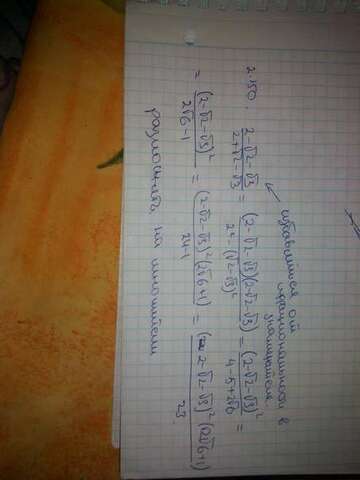 избавиться от
иррациональности в
знаменателе.
2.150. (2-√2-√3)/(2+√2-√3) = (2-√2-√3)(2-√2-√3)/(2²-(√2-√3)²) = (2-√2-√3)²/(4-5+2√6) =
= (2-√2-√3)²/(2√6-1) = (2-√2-√3)²(2√6+1)/(24-1) = (2-√2-√3)²(2√6+1)/23.
разложить на множители